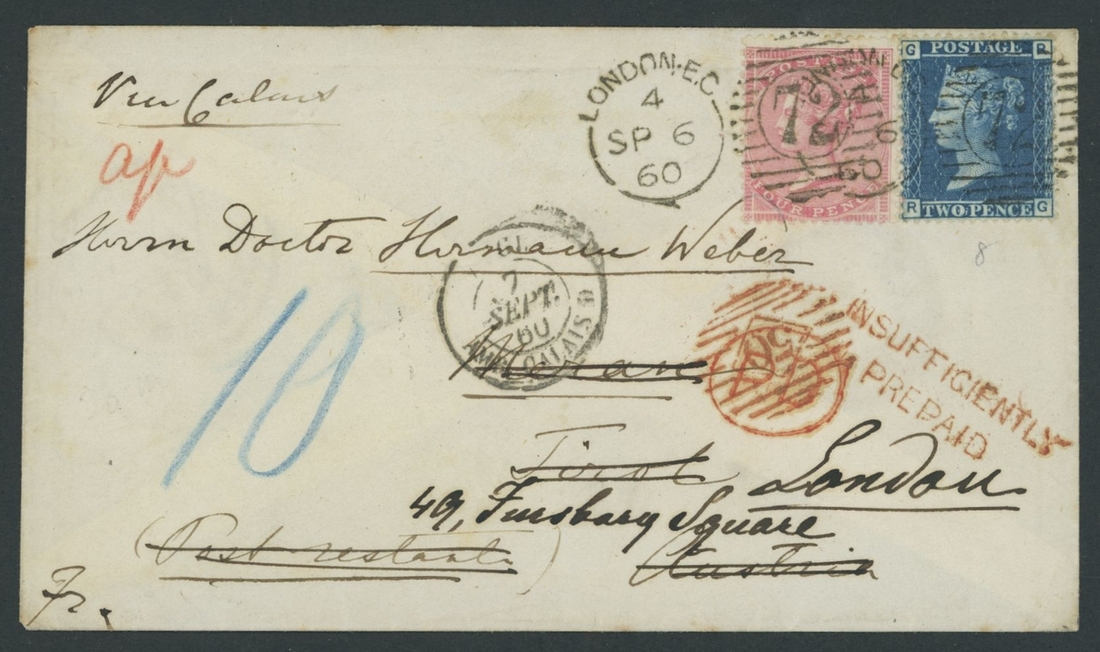 Via Calais
LONDON·E.C
4
SP 6
60
POSTAGE
FOUR PENCE
72
G POSTAGE R
R TWO PENCE G
72
8
Herrn Doctor Hermann Weber
7
SEPT.
60
AMB. CALAIS
Meran
INSUFFICIENTLY
PREPAID
10
Tirol London
49, Finsbury Square
(Post restant)
Austria
Fr.